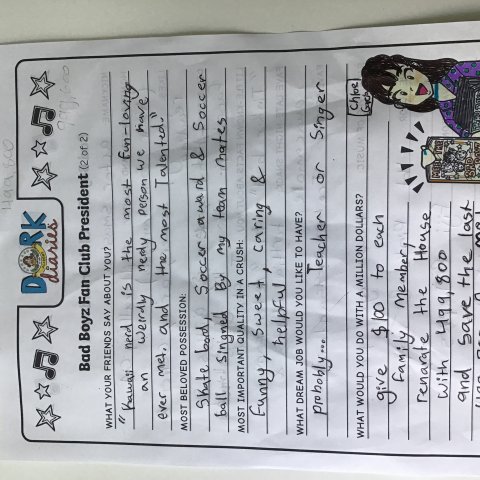 DORK
diaries
Bad Boyz Fan Club President (2 of 2)
WHAT YOUR FRIENDS SAY ABOUT YOU?
"Kawaii nerd is the most fun-loving
an weirdly nerny person we have
ever met, and the most Talented"
MOST BELOVED POSSESSION:
Skate boad, Soccer award & Soccer
ball singned By my team mates
MOST IMPORTANT QUALITY IN A CRUSH:
Funny, Sweet, caring &
helpful
WHAT DREAM JOB WOULD YOU LIKE TO HAVE?
probobly... Teacher or Singer
WHAT WOULD YOU DO WITH A MILLION DOLLARS?
give $100 to each
family Member,
renarate the House
with 499,800
and save the last
Chloe